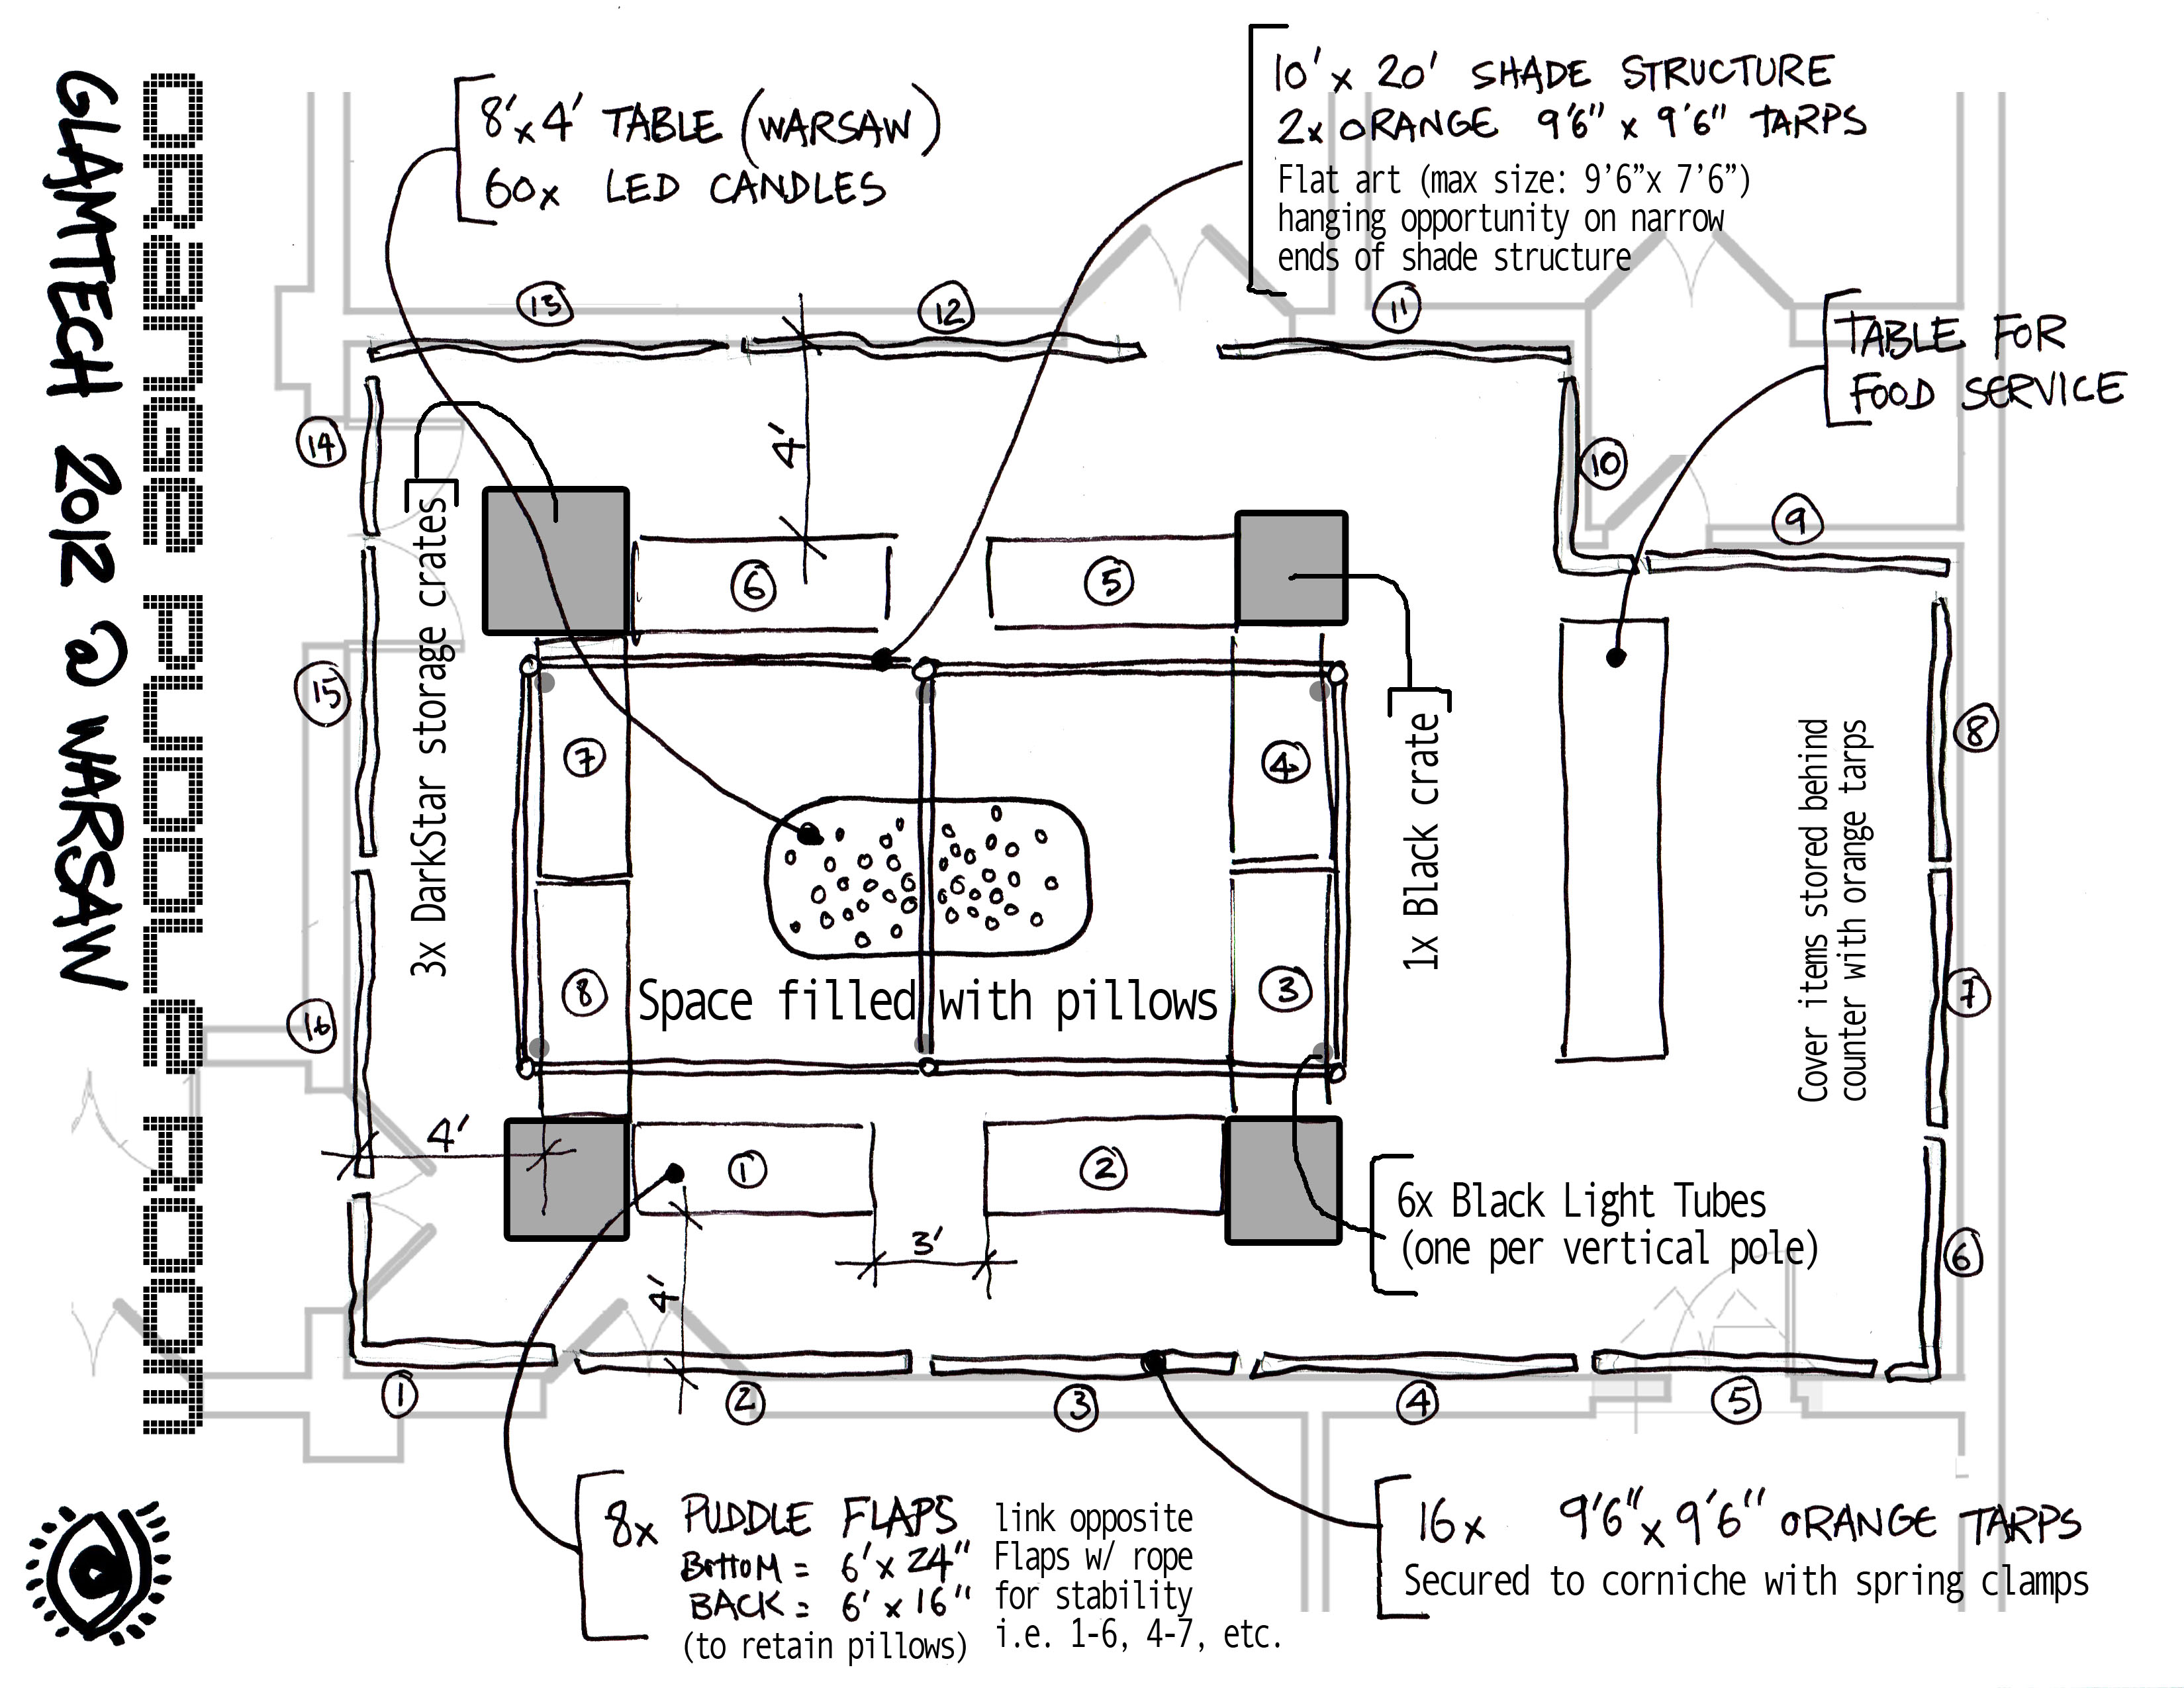 ORANGE PUDDLE ROOM
GLAMTECH 2012 @ WARSAW
8'x4' TABLE (WARSAW)
60x LED CANDLES
10' x 20' SHADE STRUCTURE
2x ORANGE 9'6" x 9'6" TARPS
Flat art (max size: 9’6”x 7’6”)
hanging opportunity on narrow
ends of shade structure
TABLE FOR
FOOD SERVICE
13
12
11
14
10
9
15
8
16
7
6
4'
3x DarkStar storage crates
6
5
7
4
8
3
1x Black crate
Cover items stored behind
counter with orange tarps
Space filled with pillows
4'
1
2
3'
4'
6x Black Light Tubes
(one per vertical pole)
1
2
3
4
5
8x PUDDLE FLAPS
BOTTOM = 6' x 24"
BACK = 6' x 16"
(to retain pillows)
link opposite
Flaps w/ rope
for stability
i.e. 1-6, 4-7, etc.
16x 9'6" x 9'6" ORANGE TARPS
Secured to corniche with spring clamps